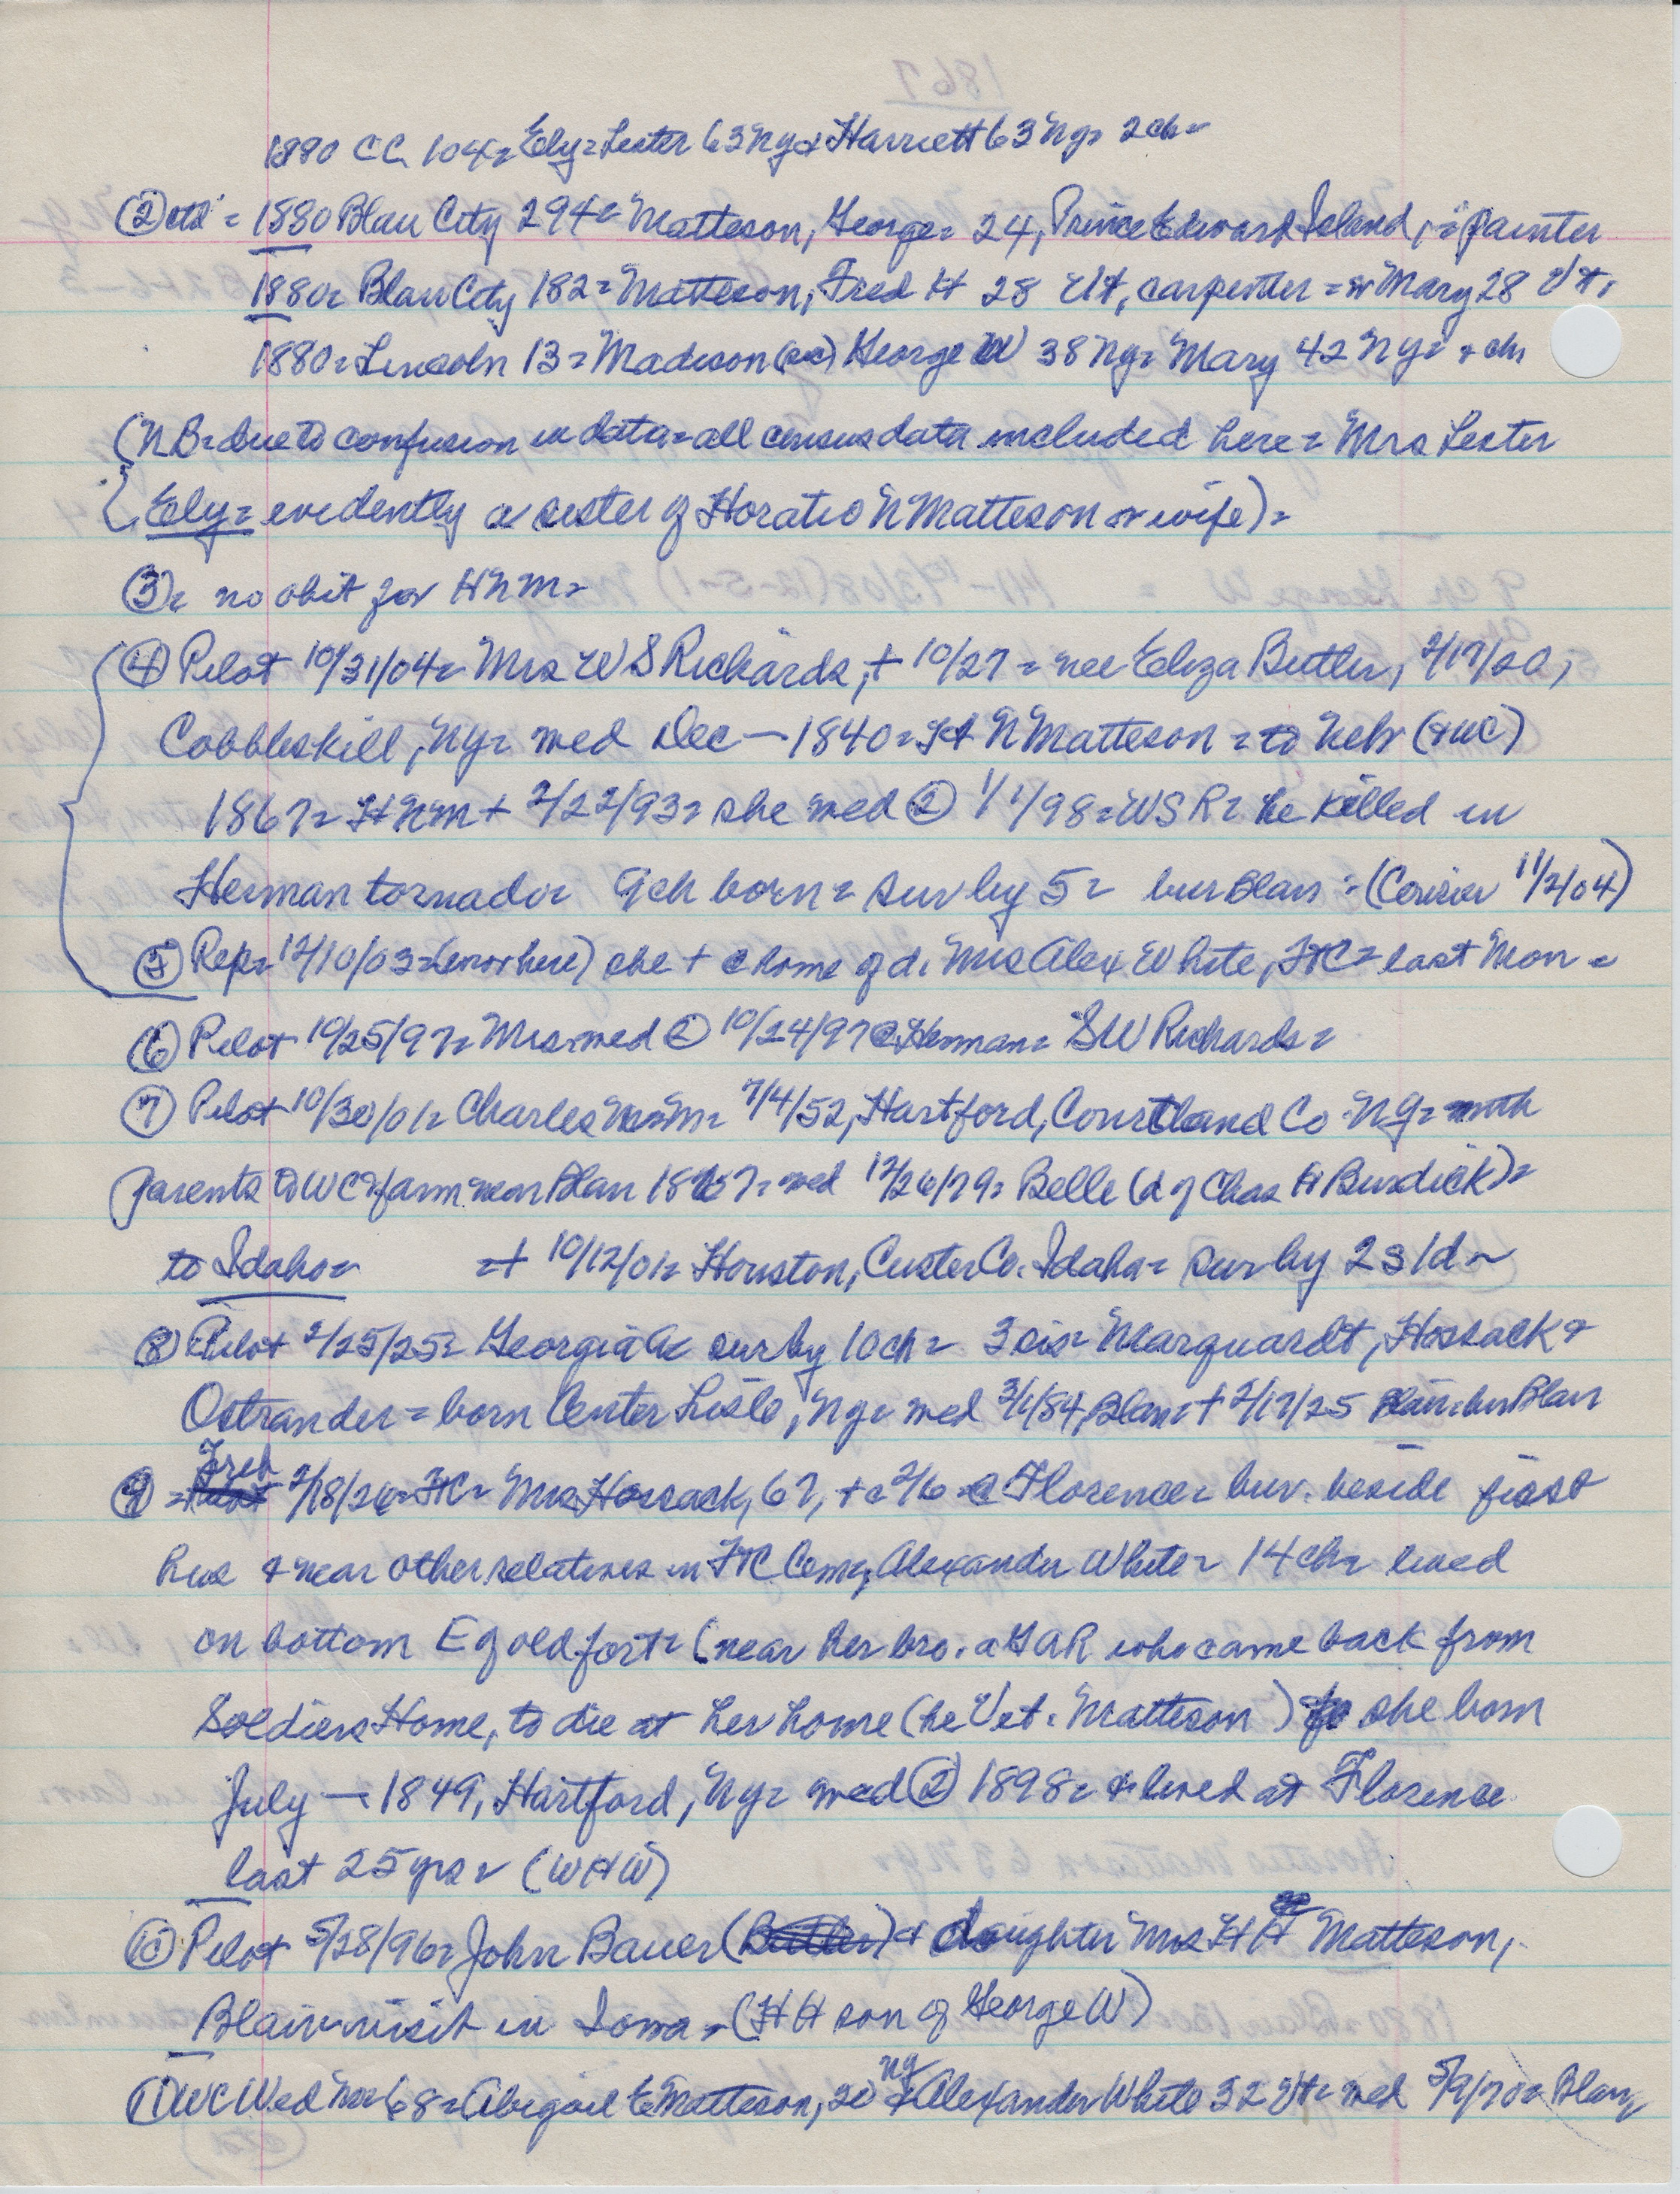 1880 CC 104= Ely= Lester 63 Ny & Harriett 63 Ny= 2 ch=
② ctd = 1880 Blair City 294= Matteson, George= 24, Prince Edward Island, = painter
1880= Blair City 182= Matteson, Fred H 28 Vt, carpenter = w Mary 28 Vt,
1880= Lincoln 13= Madison (sic) George W 38 Ny= Mary 42 Ny= + ch
(NB= due to confusion in data= all census data included here= Mrs Lester
Ely= evidently a sister of Horatio N Matteson or wife)=
③= no obit for HNM=
④ Pilot 10/31/04= Mrs W S Richards, + 10/27 = nee Eliza Butler, 2/17/20,
Cobbleskill, Ny= med Dec — 1840= H N Matteson = to Nebr (& WC)
1867= HNM + 2/22/93= she med ② 1/1/98= WSR= he killed in
Herman tornado= 9 ch born= sur by 5= bur Blair = (Courier 11/2/04)
⑤ Rep= 12/10/03= (error here) she + @ home of d. Mrs Alex White, FTC= last Mon =
⑥ Pilot 10/25/97= Mrs. med ② 10/24/97 @ Herman= SW Richards=
⑦ Pilot 10/30/01= Charles M= 7/4/52, Hartford, Courtland Co Ny= with
parents to WC & farm near Blair 1867= med 12/26/79= Belle (d of Chas H Burdick)=
to Idaho= =+ 10/12/01= Houston, Custer Co. Idaho= sur by 2s 1d ~
⑧ Pilot 2/25/25= Georgia sur by 10 ch= 3 sis= Marquardt, Hossack &
Ostrander = born Center Lisle, Ny= med 3/1/84, Blair= + 2/17/25 Blair= bur Blair
Trib
⑨ = 2/18/26= FTC= Mrs Hossack, 67, + c 2/6 @ Florence= bur. beside first
hus & near other relatives in FTC Cem, Alexander White= 14 ch= lived
on bottom E of old fort= (near her bro. a GAR who came back from
Soldiers Home, to die at her home (he Vet. Matteson) she born
July — 1849, Hartford, Ny= med ② 1898= & lived at Florence
last 25 yrs= (WHW)
⑩ Pilot 5/28/96= John Bauer (Butler) & daughter Mrs H H Matteson,
Blair= visit in Iowa= (HH son of George W)
⑪ WC Wed 68= Abigail E Matteson, 20 Ny & Alexander White 32 Vt= med 5/9/70= Blair,